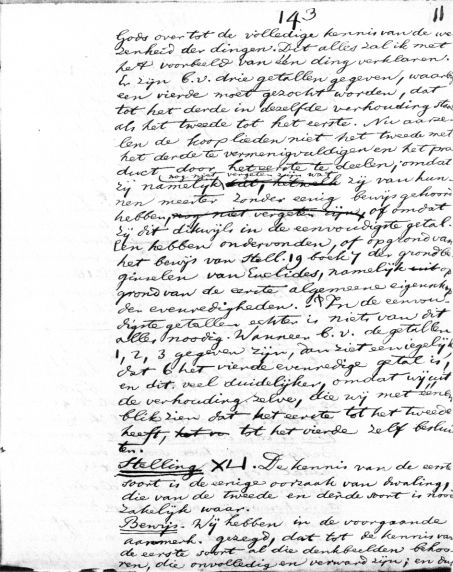 143 11
Gods over tot de volledige kennis van de we
zenheid der dingen. Dit alles zal ik met
het voorbeeld van één ding verklaren.
Er zijn b.v. drie getallen gegeven, waarbij
een vierde moet gezocht worden, dat
tot het derde in dezelfde verhouding staat
als het tweede tot het eerste. Nu aarze-
len de kooplieden niet het tweede met
het derde te vermenigvuldigen en het pro
duct door het eerste te deelen; omdat
nog niet vergeten zijn wat
zij namelijk zij van hun-
nen meester zonder eenig bewijs gehoord
hebben, nog niet vergeten zijn, of omdat
zij dit dikwijls in de eenvoudigste getal-
len hebben ondervonden, of op grond van
het bewijs van Stell. 19 boek 7 der grondbe
ginselen van Euclides, namelijk uit op
grond van de eerste algemeene eigenschap
der evenredigheden. In de eenvou-
digste getallen echter is niets van dit
alles noodig. Wanneer b.v. de getallen
1, 2, 3 gegeven zijn, dan ziet een iegelijk
dat 6 het vierde evenredige getal is,
en dit veel duidelijker, omdat wij uit
de verhouding zelve, die wij met een
blik zien dat het eerste tot het tweede
heeft, tot het vierde zelf beslui
ten.
Stelling XLI. De kennis van de eerste
soort is de eenige oorzaak van dwaling,
die van de tweede en derde soort is nood
zakelijk waar.
Bewijs. Wij hebben in de voorgaande
aanmerk. gezegd, dat tot de kennis van
de eerste soort al die denkbeelden behoo-
ren, die onvolledig en verward zijn; en dus